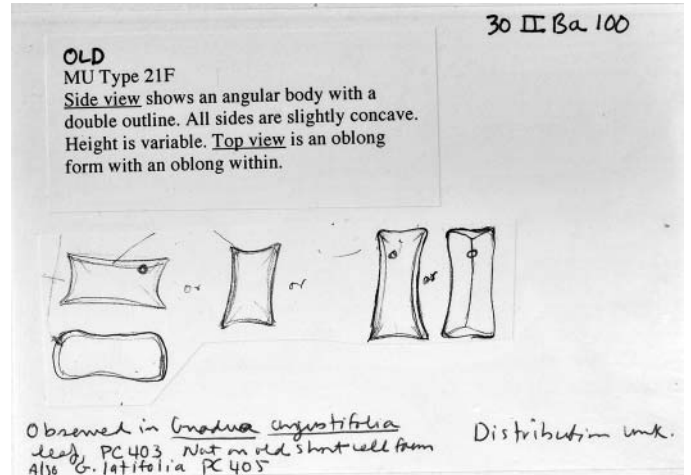 30 II Ba 100
OLD
MU Type 21F
Side view shows an angular body with a
double outline. All sides are slightly concave.
Height is variable. Top view is an oblong
form with an oblong within.
or or or
Observed in Guadua angustifolia
leaf, PC 403 Not on old short cell form
Also G. latifolia PC 405
Distribution unk.